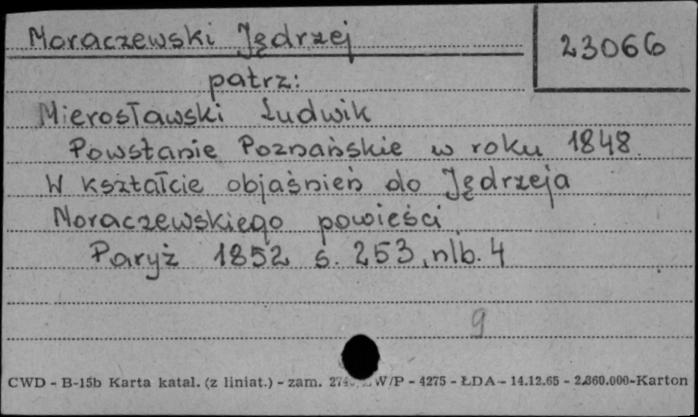 Moraczewski Jędrzej
23066
patrz:
Mierosławski Ludwik
Powstanie Poznańskie w roku 1848.
W kształcie objaśnień do Jędrzeja
Moraczewskiego powieści.
Paryż 1852 s. 253, nlb. 4
9
CWD - B-15b Karta katal. (z liniat.) - zam. W/P - 4275 - ŁDA - 14.12.65 - 2.360.000-Karton